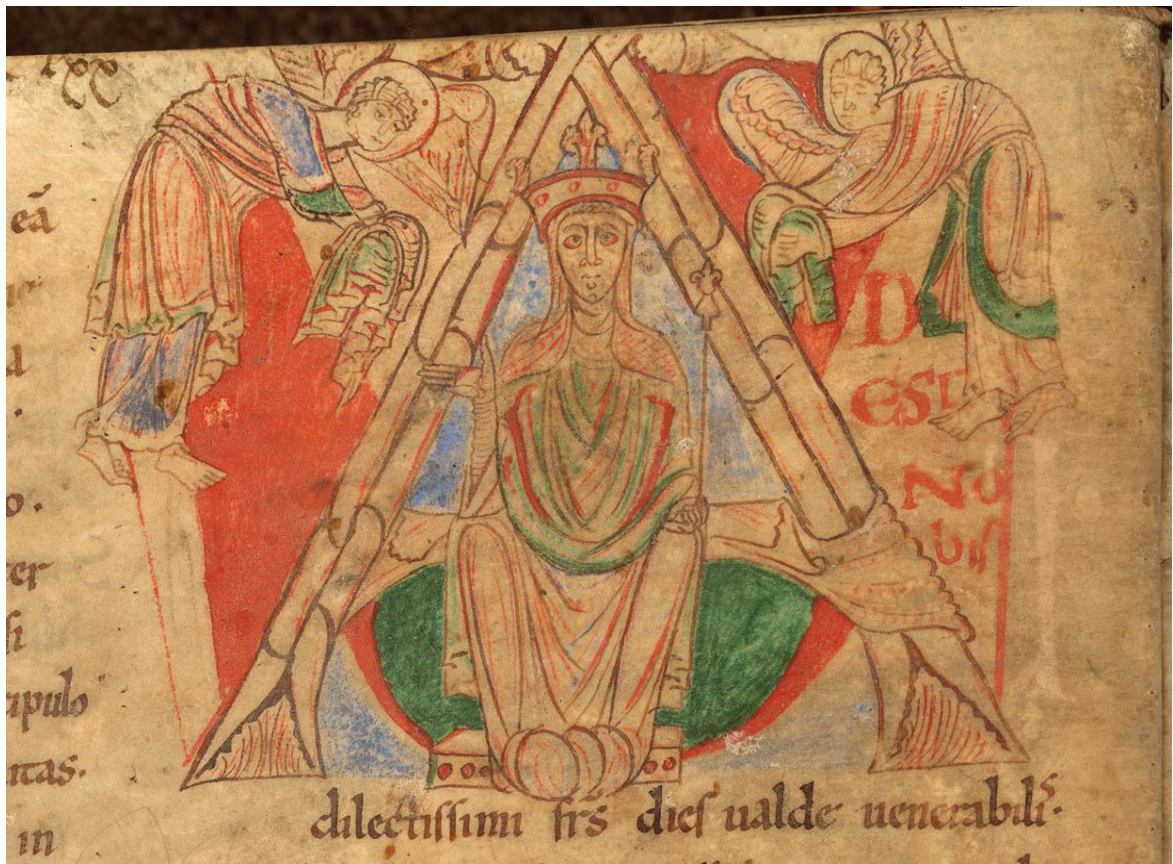 eā
o.
ter
si
ipulo
ntas.
in
D
est
No
bis
dilectissimi fr̄s dies ualde uenerabilis.